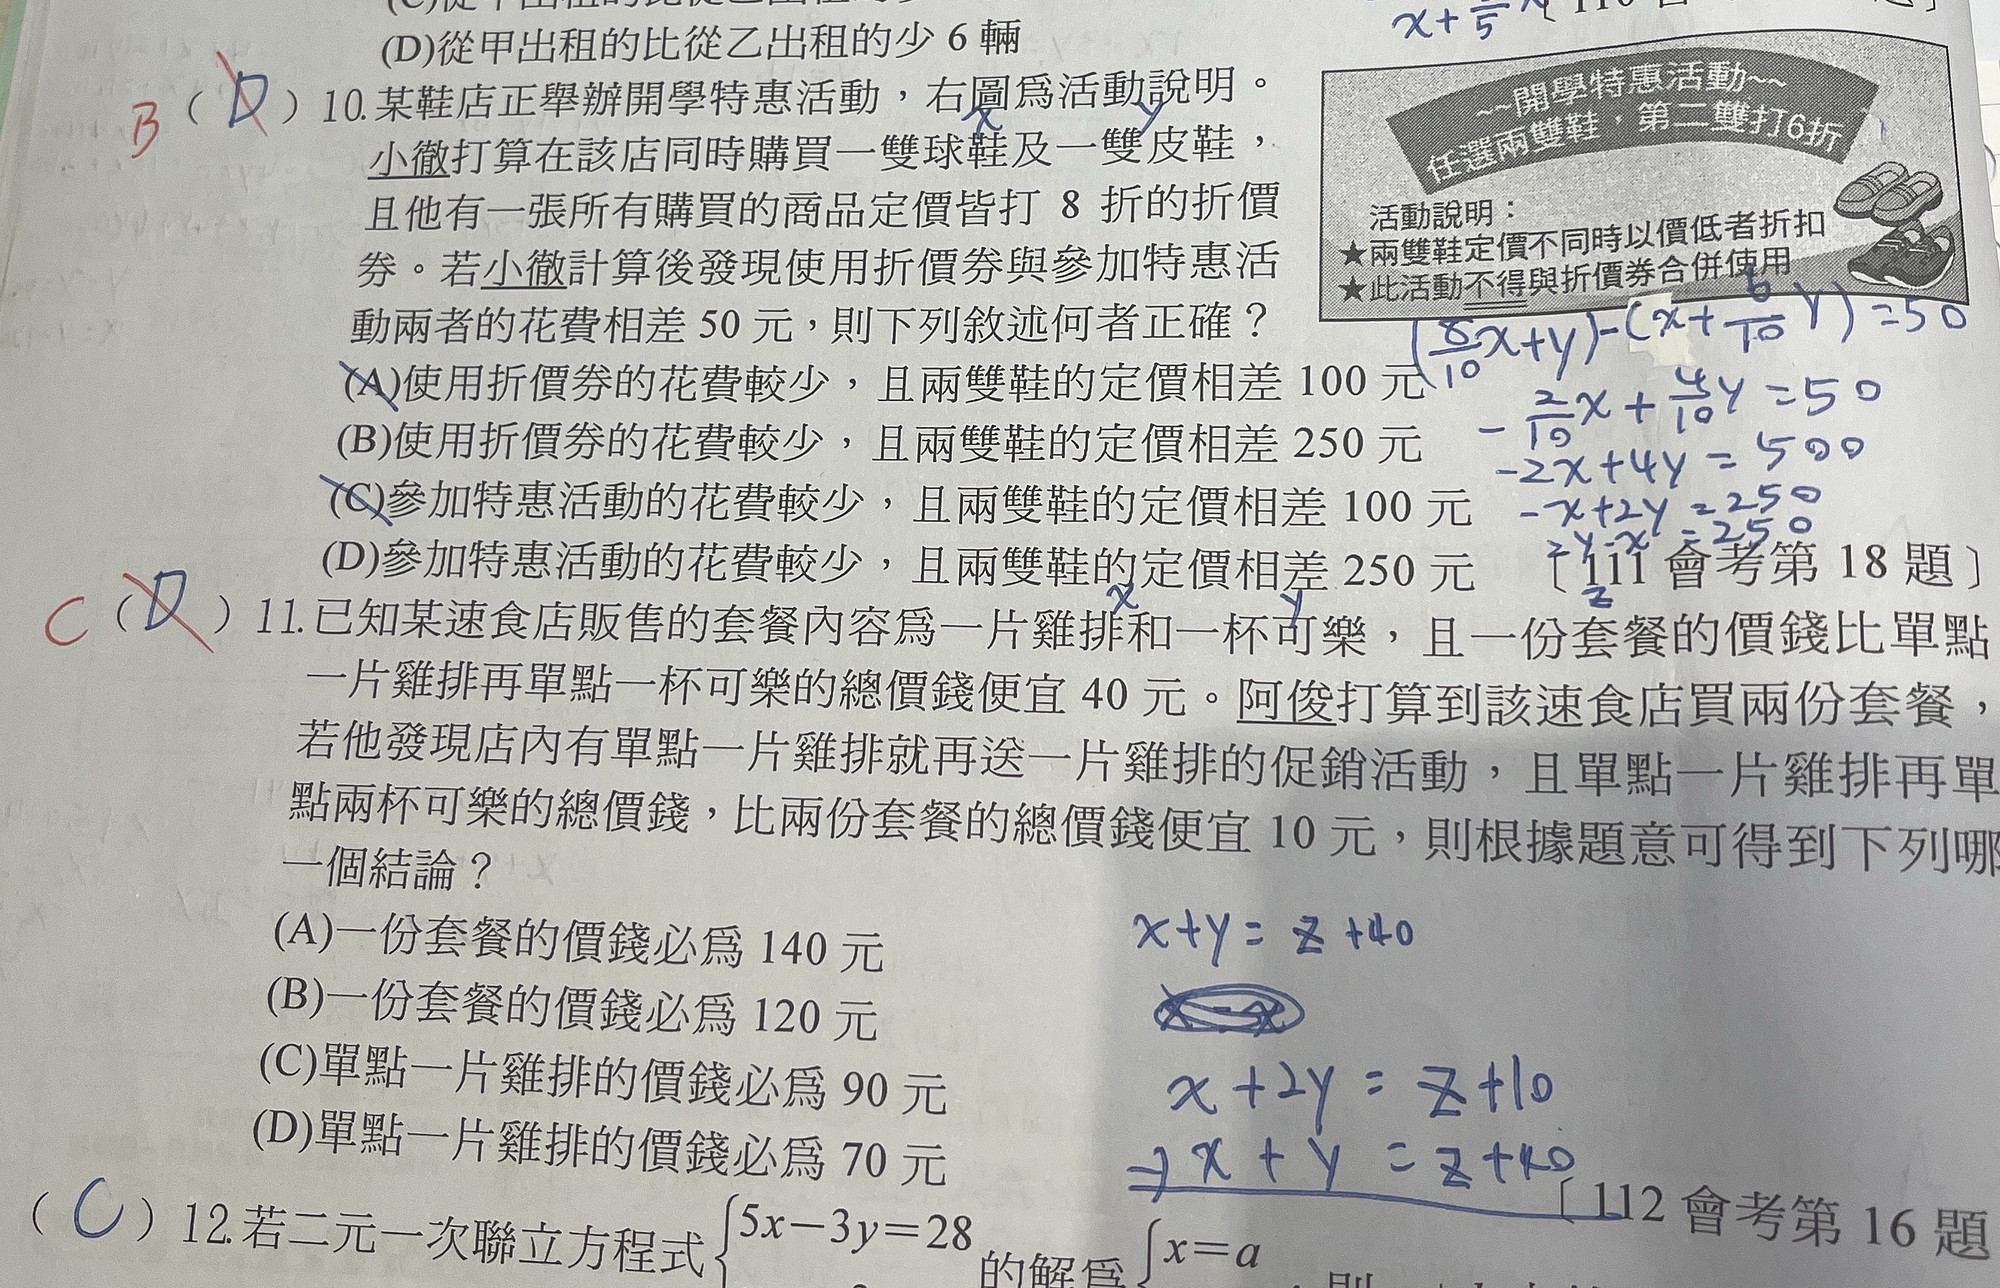 (D)從甲出租的比從乙出租的少 6 輛
x+
5
B ( D ) 10.某鞋店正舉辦開學特惠活動，右圖為活動說明。
x y
小徹打算在該店同時購買一雙球鞋及一雙皮鞋，
且他有一張所有購買的商品定價皆打 8 折的折價
券。若小徹計算後發現使用折價券與參加特惠活
動兩者的花費相差 50 元，則下列敘述何者正確？
(A)使用折價券的花費較少，且兩雙鞋的定價相差 100 元
(B)使用折價券的花費較少，且兩雙鞋的定價相差 250 元
(C)參加特惠活動的花費較少，且兩雙鞋的定價相差 100 元
(D)參加特惠活動的花費較少，且兩雙鞋的定價相差 250 元
〔111 會考第 18 題〕
~~開學特惠活動~~
任選兩雙鞋，第二雙打6折
活動說明：
★兩雙鞋定價不同時以價低者折扣
★此活動不得與折價券合併使用
(8/10x+y)-(x+6/10y)=50
-2/10x+4/10y=50
-2x+4y=500
-x+2y=250
2y-x=250
C ( D ) 11.已知某速食店販售的套餐內容為一片雞排和一杯可樂，且一份套餐的價錢比單點
x y z
一片雞排再單點一杯可樂的總價錢便宜 40 元。阿俊打算到該速食店買兩份套餐，
若他發現店內有單點一片雞排就再送一片雞排的促銷活動，且單點一片雞排再單
點兩杯可樂的總價錢，比兩份套餐的總價錢便宜 10 元，則根據題意可得到下列哪
一個結論？
(A)一份套餐的價錢必為 140 元
(B)一份套餐的價錢必為 120 元
(C)單點一片雞排的價錢必為 90 元
(D)單點一片雞排的價錢必為 70 元
x+y=z+40
x+2y=z+10
-)x+y=z+40
〔112 會考第 16 題
( C ) 12.若二元一次聯立方程式{5x−3y=28
的解為{x=a